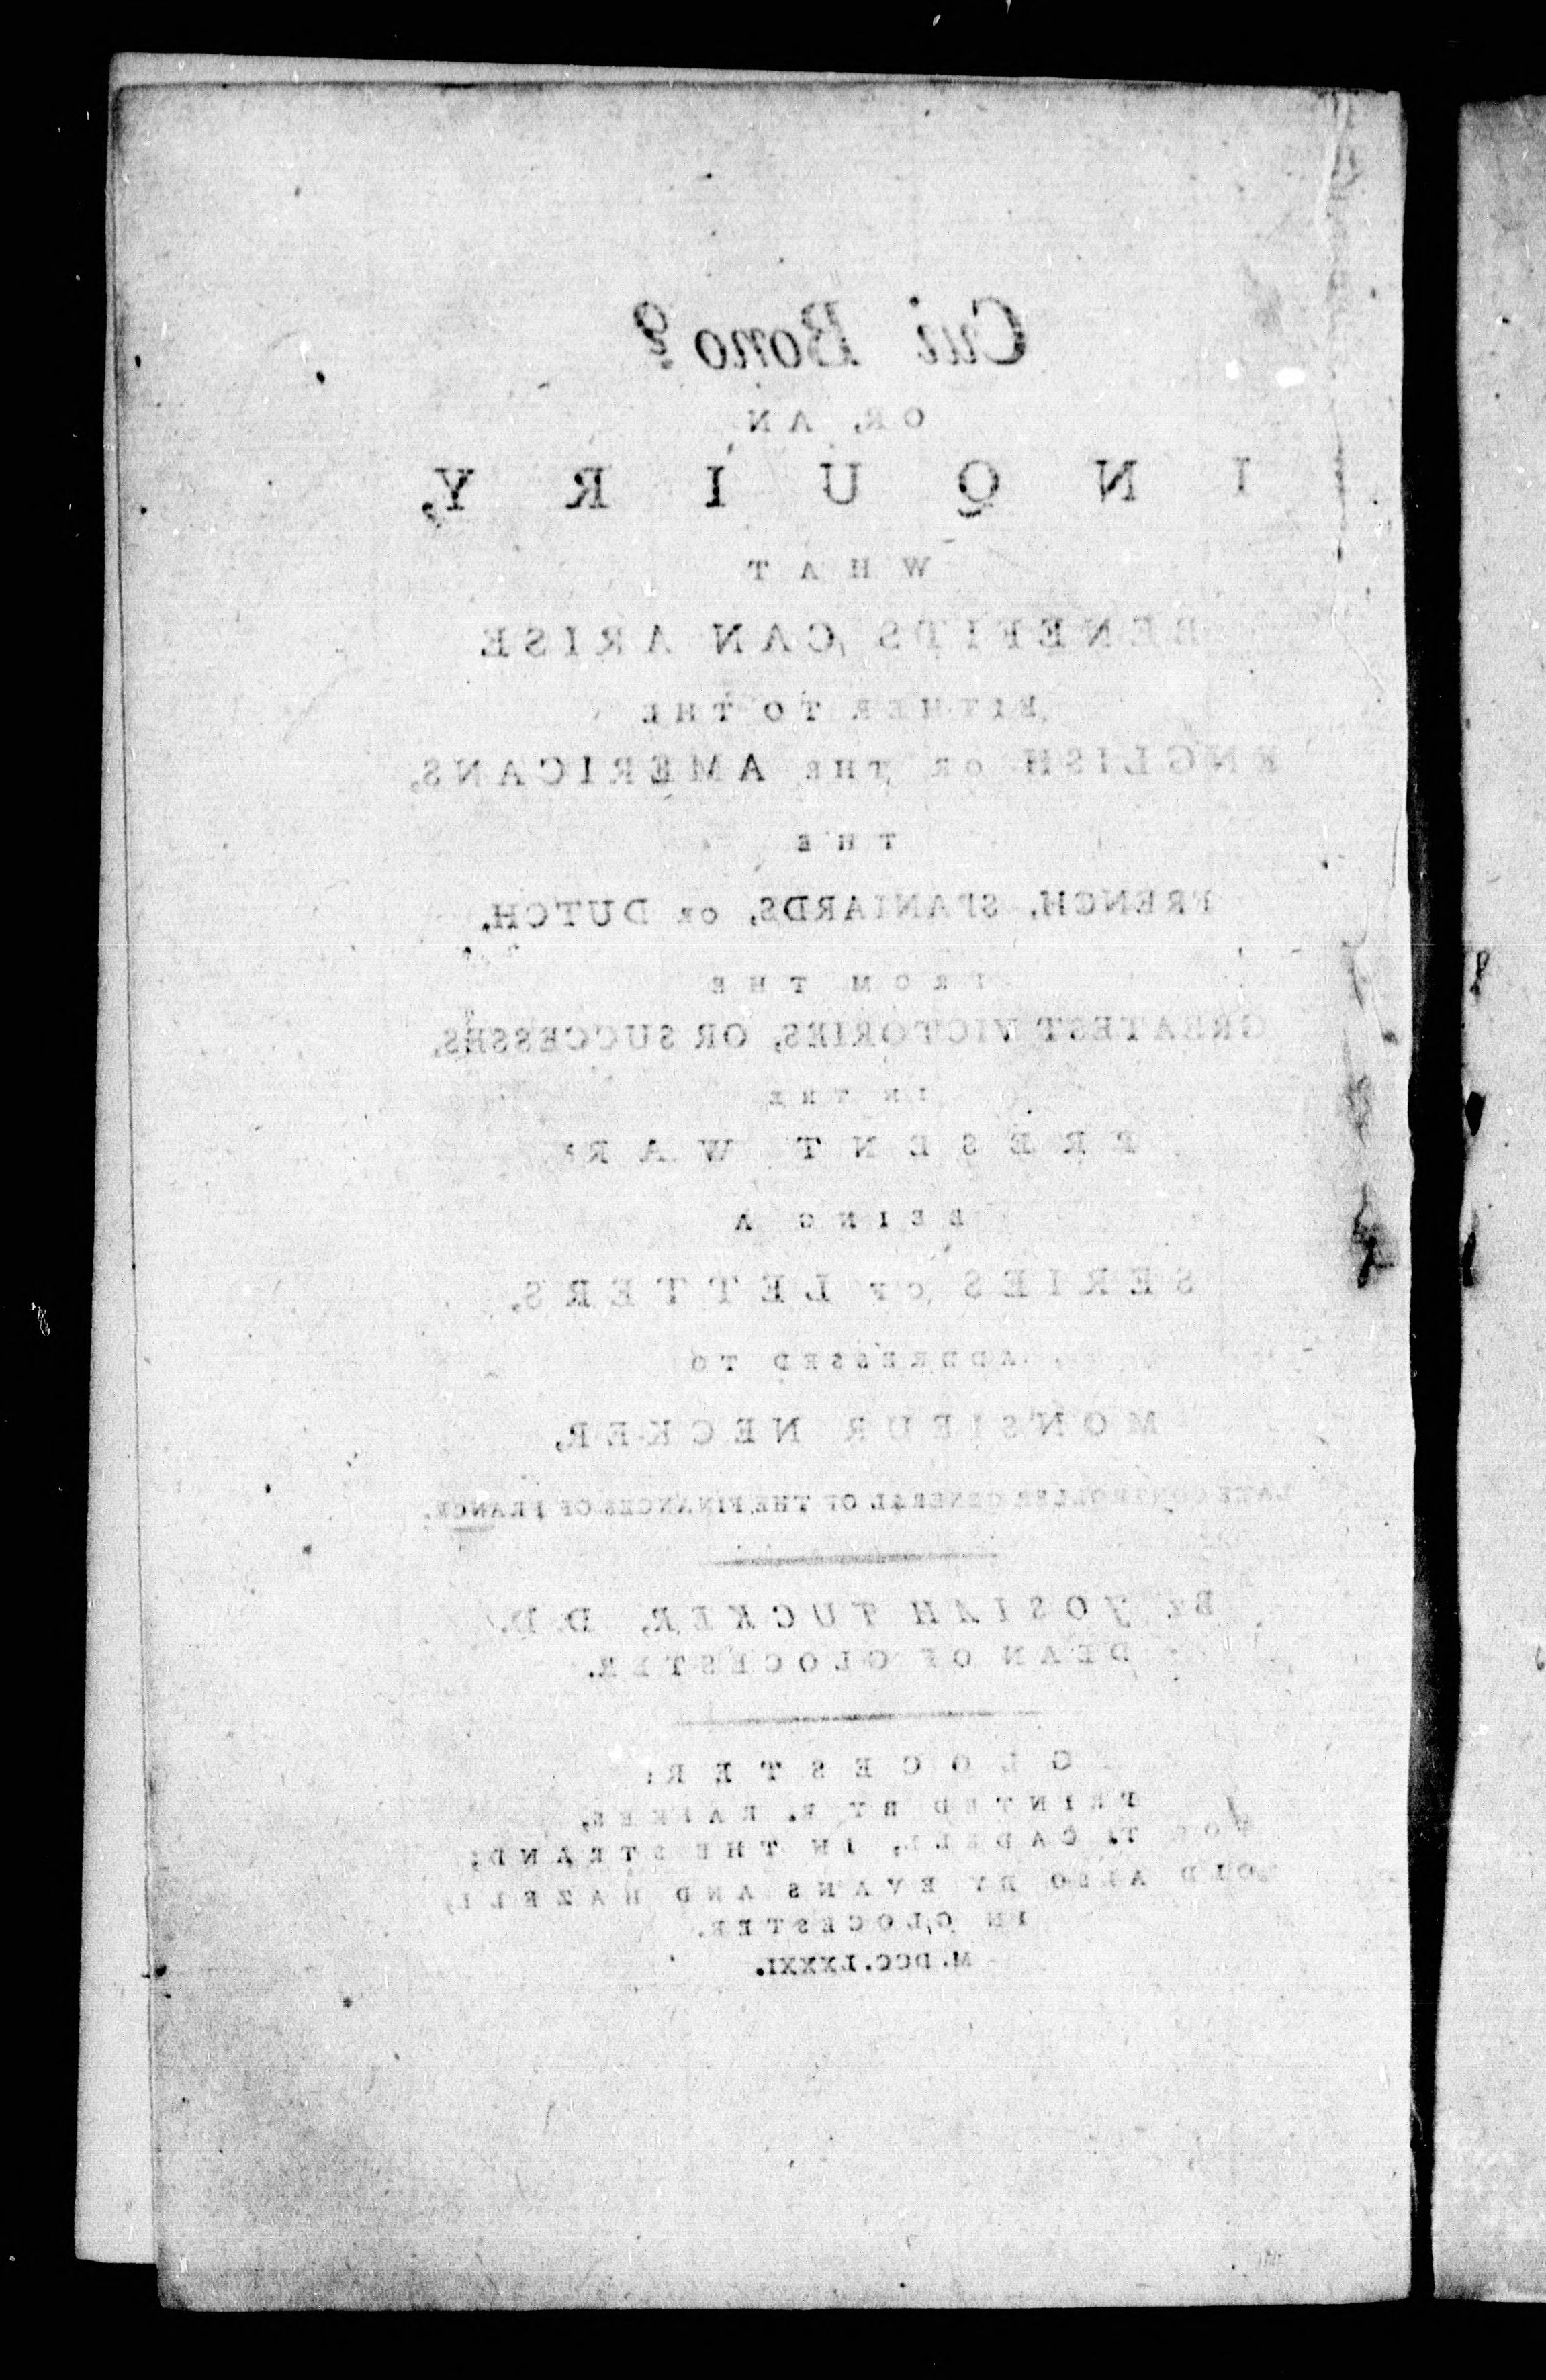 Cui Bono?
OR, AN
INQUIRY,
WHAT
BENEFITS CAN ARISE
EITHER TO THE
ENGLISH OR THE AMERICANS,
THE
FRENCH, SPANIARDS, OR DUTCH,
FROM THE
GREATEST VICTORIES, OR SUCCESSES,
IN THE
PRESENT WAR?
BEING A
SERIES OF LETTERS,
ADDRESSED TO
MONSIEUR NECKER,
LATE CONTROLLER GENERAL OF THE FINANCES OF FRANCE.
BY JOSIAH TUCKER, D.D.
DEAN OF GLOCESTER.
GLOCESTER:
PRINTED BY R. RAIKES,
FOR T. CADELL, IN THE STRAND;
SOLD ALSO BY EVANS AND HAZELL,
IN GLOCESTER.
M.DCC.LXXXI.